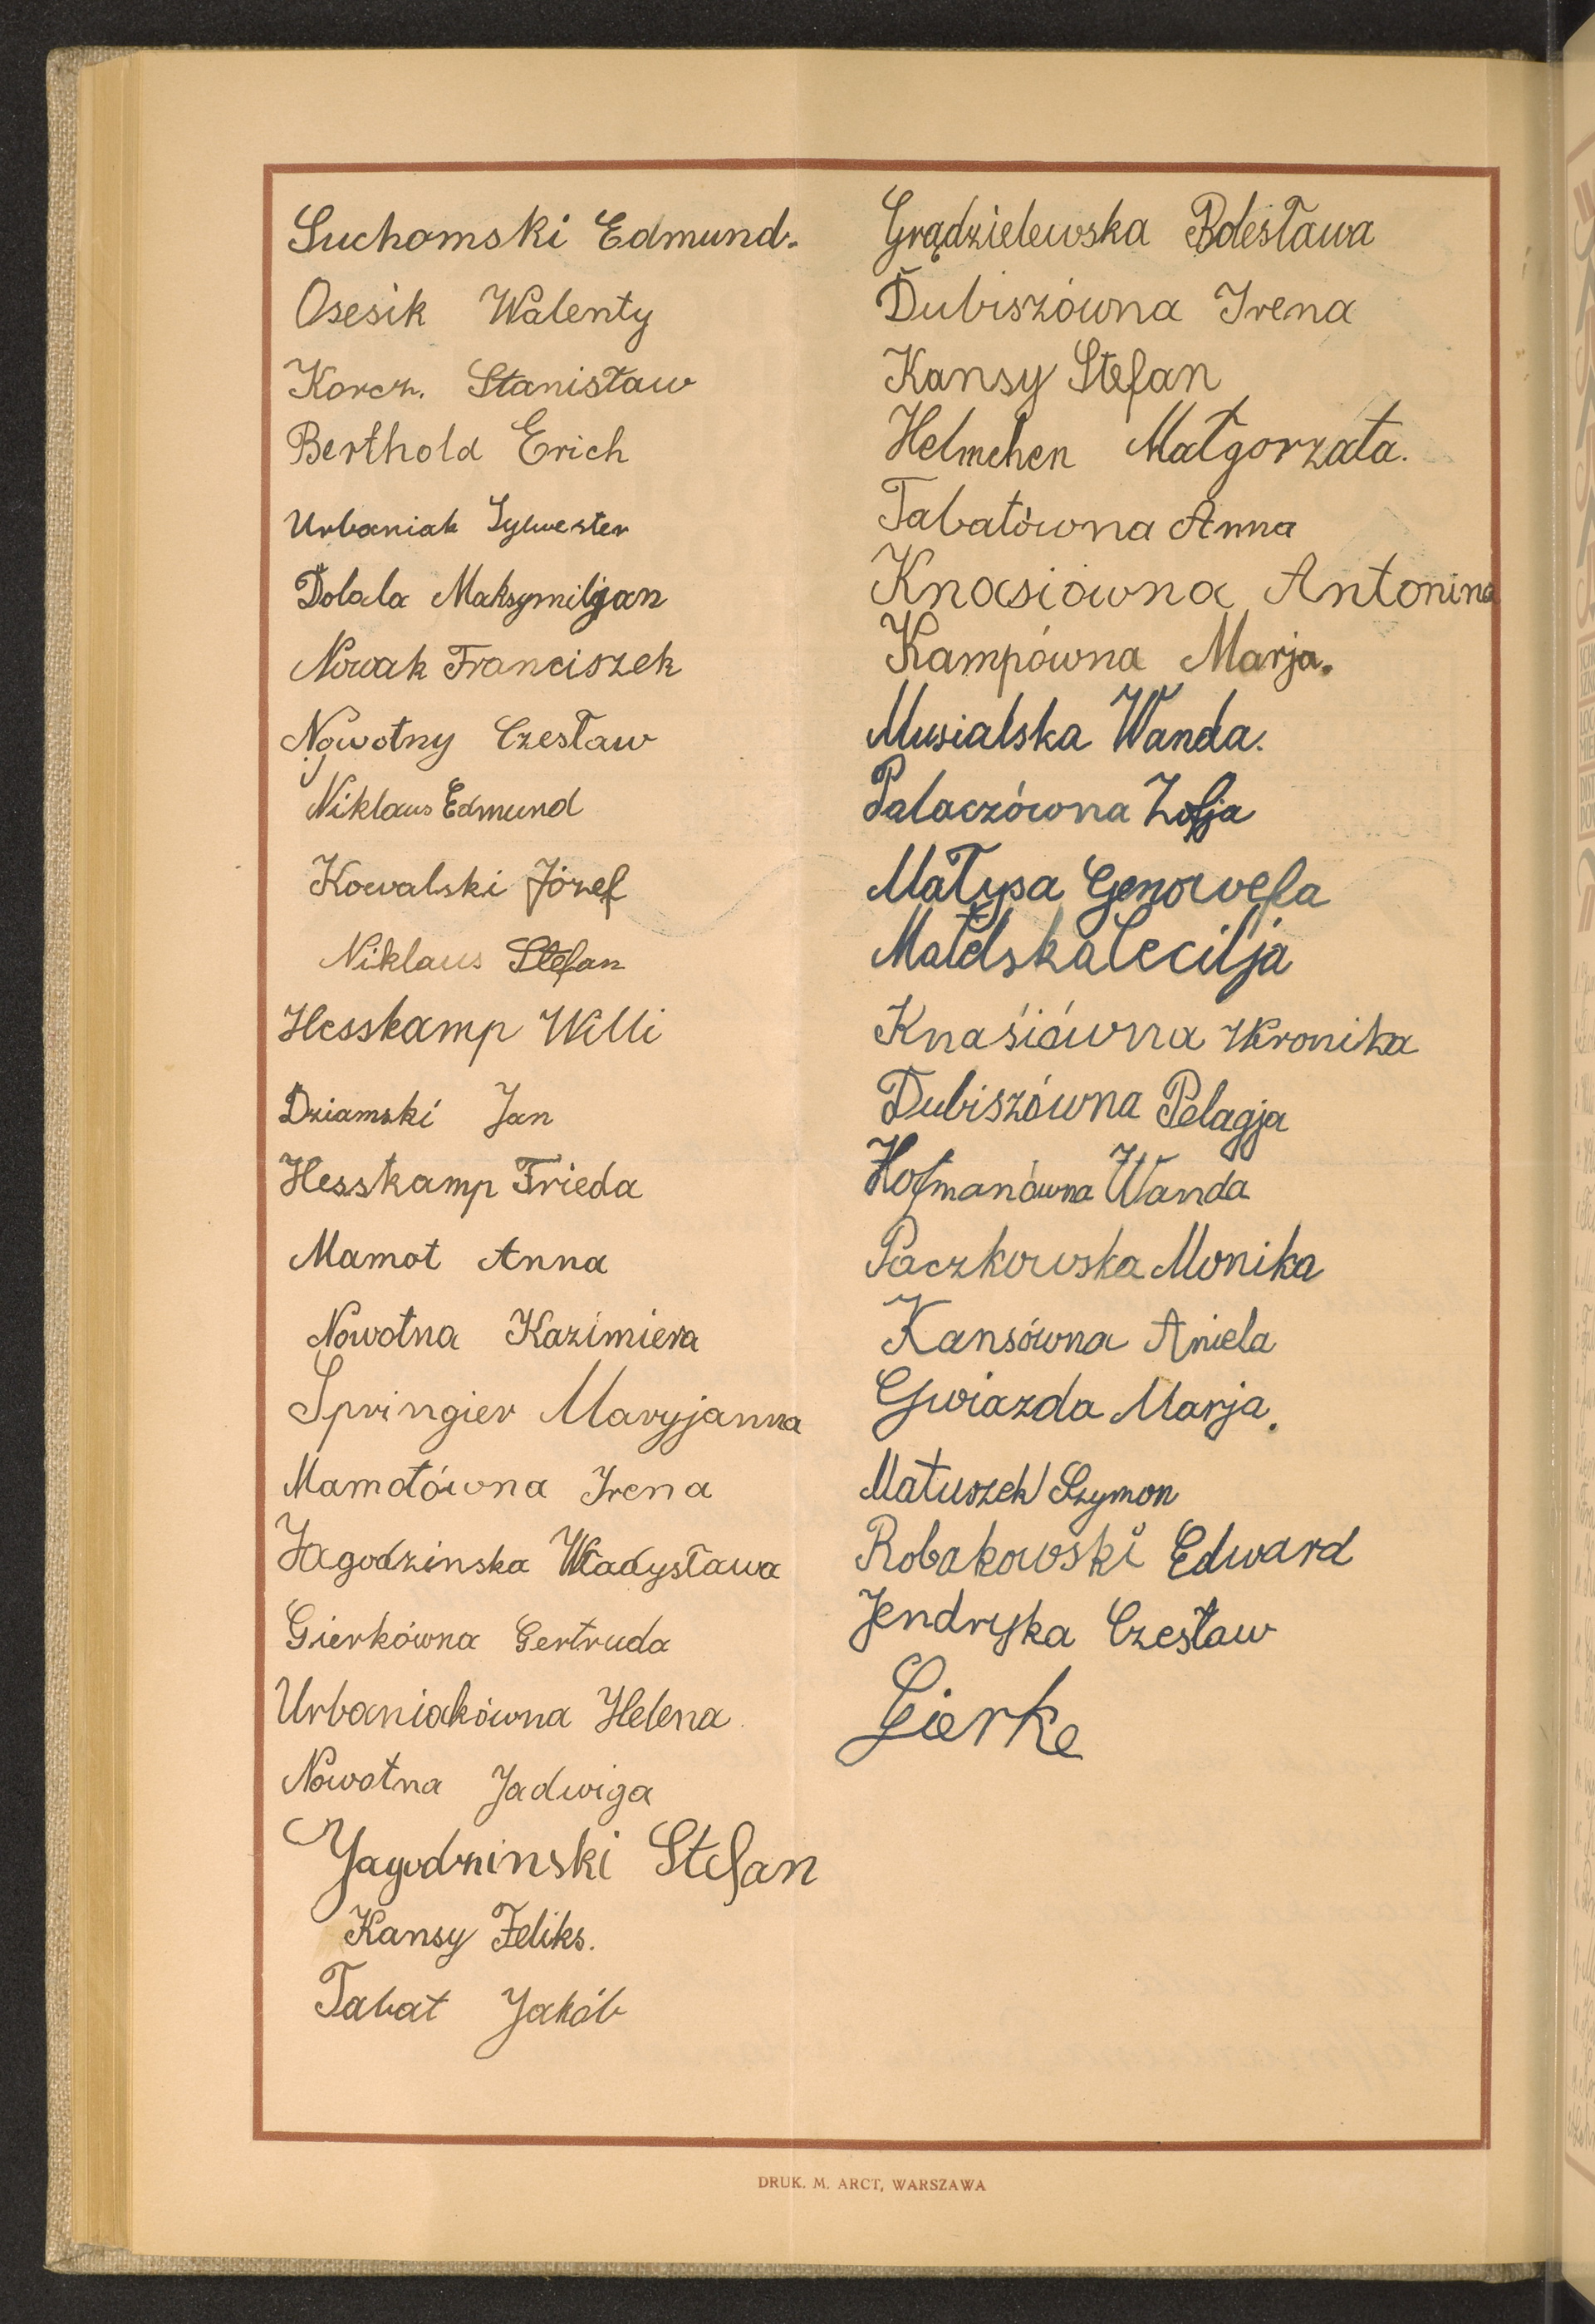 Suchomski Edmund.
Osesik Walenty
Korcz. Stanisław
Berthold Erich
Urbaniak Sylwester
Dolala Maksymiljan
Nowak Franciszek
Nowotny Czesław
Niklaus Edmund
Kowalski Józef
Niklaus Stefan
Hesskamp Willi
Dziamski Jan
Hesskamp Frieda
Mamot Anna
Nowotna Kazimiera
Springier Maryjanna
Mamotówna Irena
Jagodzinska Władysława
Gierkówna Gertruda
Urbaniakówna Helena
Nowotna Jadwiga
Jagodzinski Stefan
Kansy Feliks.
Tabat Jakób
Grądzielewska Bolesława
Dubiszówna Irena
Kansy Stefan
Helmchen Małgorzata.
Tabatówna Anna
Knasiówna Antonina
Kampówna Marja.
Musialska Wanda.
Palaczówna Zofja
Matysa Genowefa
Cecilja
Knaśiówna Weronika
Dubiszówna Pelagja
Hofmanówna Wanda
Paczkowska Monika
Kansówna Aniela
Gwiazda Marja.
Matuszek Szymon
Robakowski Edward
Jendryka Czesław
Gierke
DRUK. M. ARCT, WARSZAWA